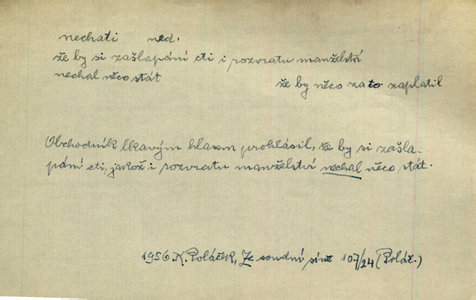 nechati ned.
že by si zašlapání cti i rozvratu manželství
nechal něco stát že by něco za to zaplatil
Obchodník lkavým hlasem prohlásil, že by si zašla-
pání cti, jakož i rozvratu manželství nechal něco stát.
1956 K. Poláček, Ze soudní síně 107/24 (Polát.)